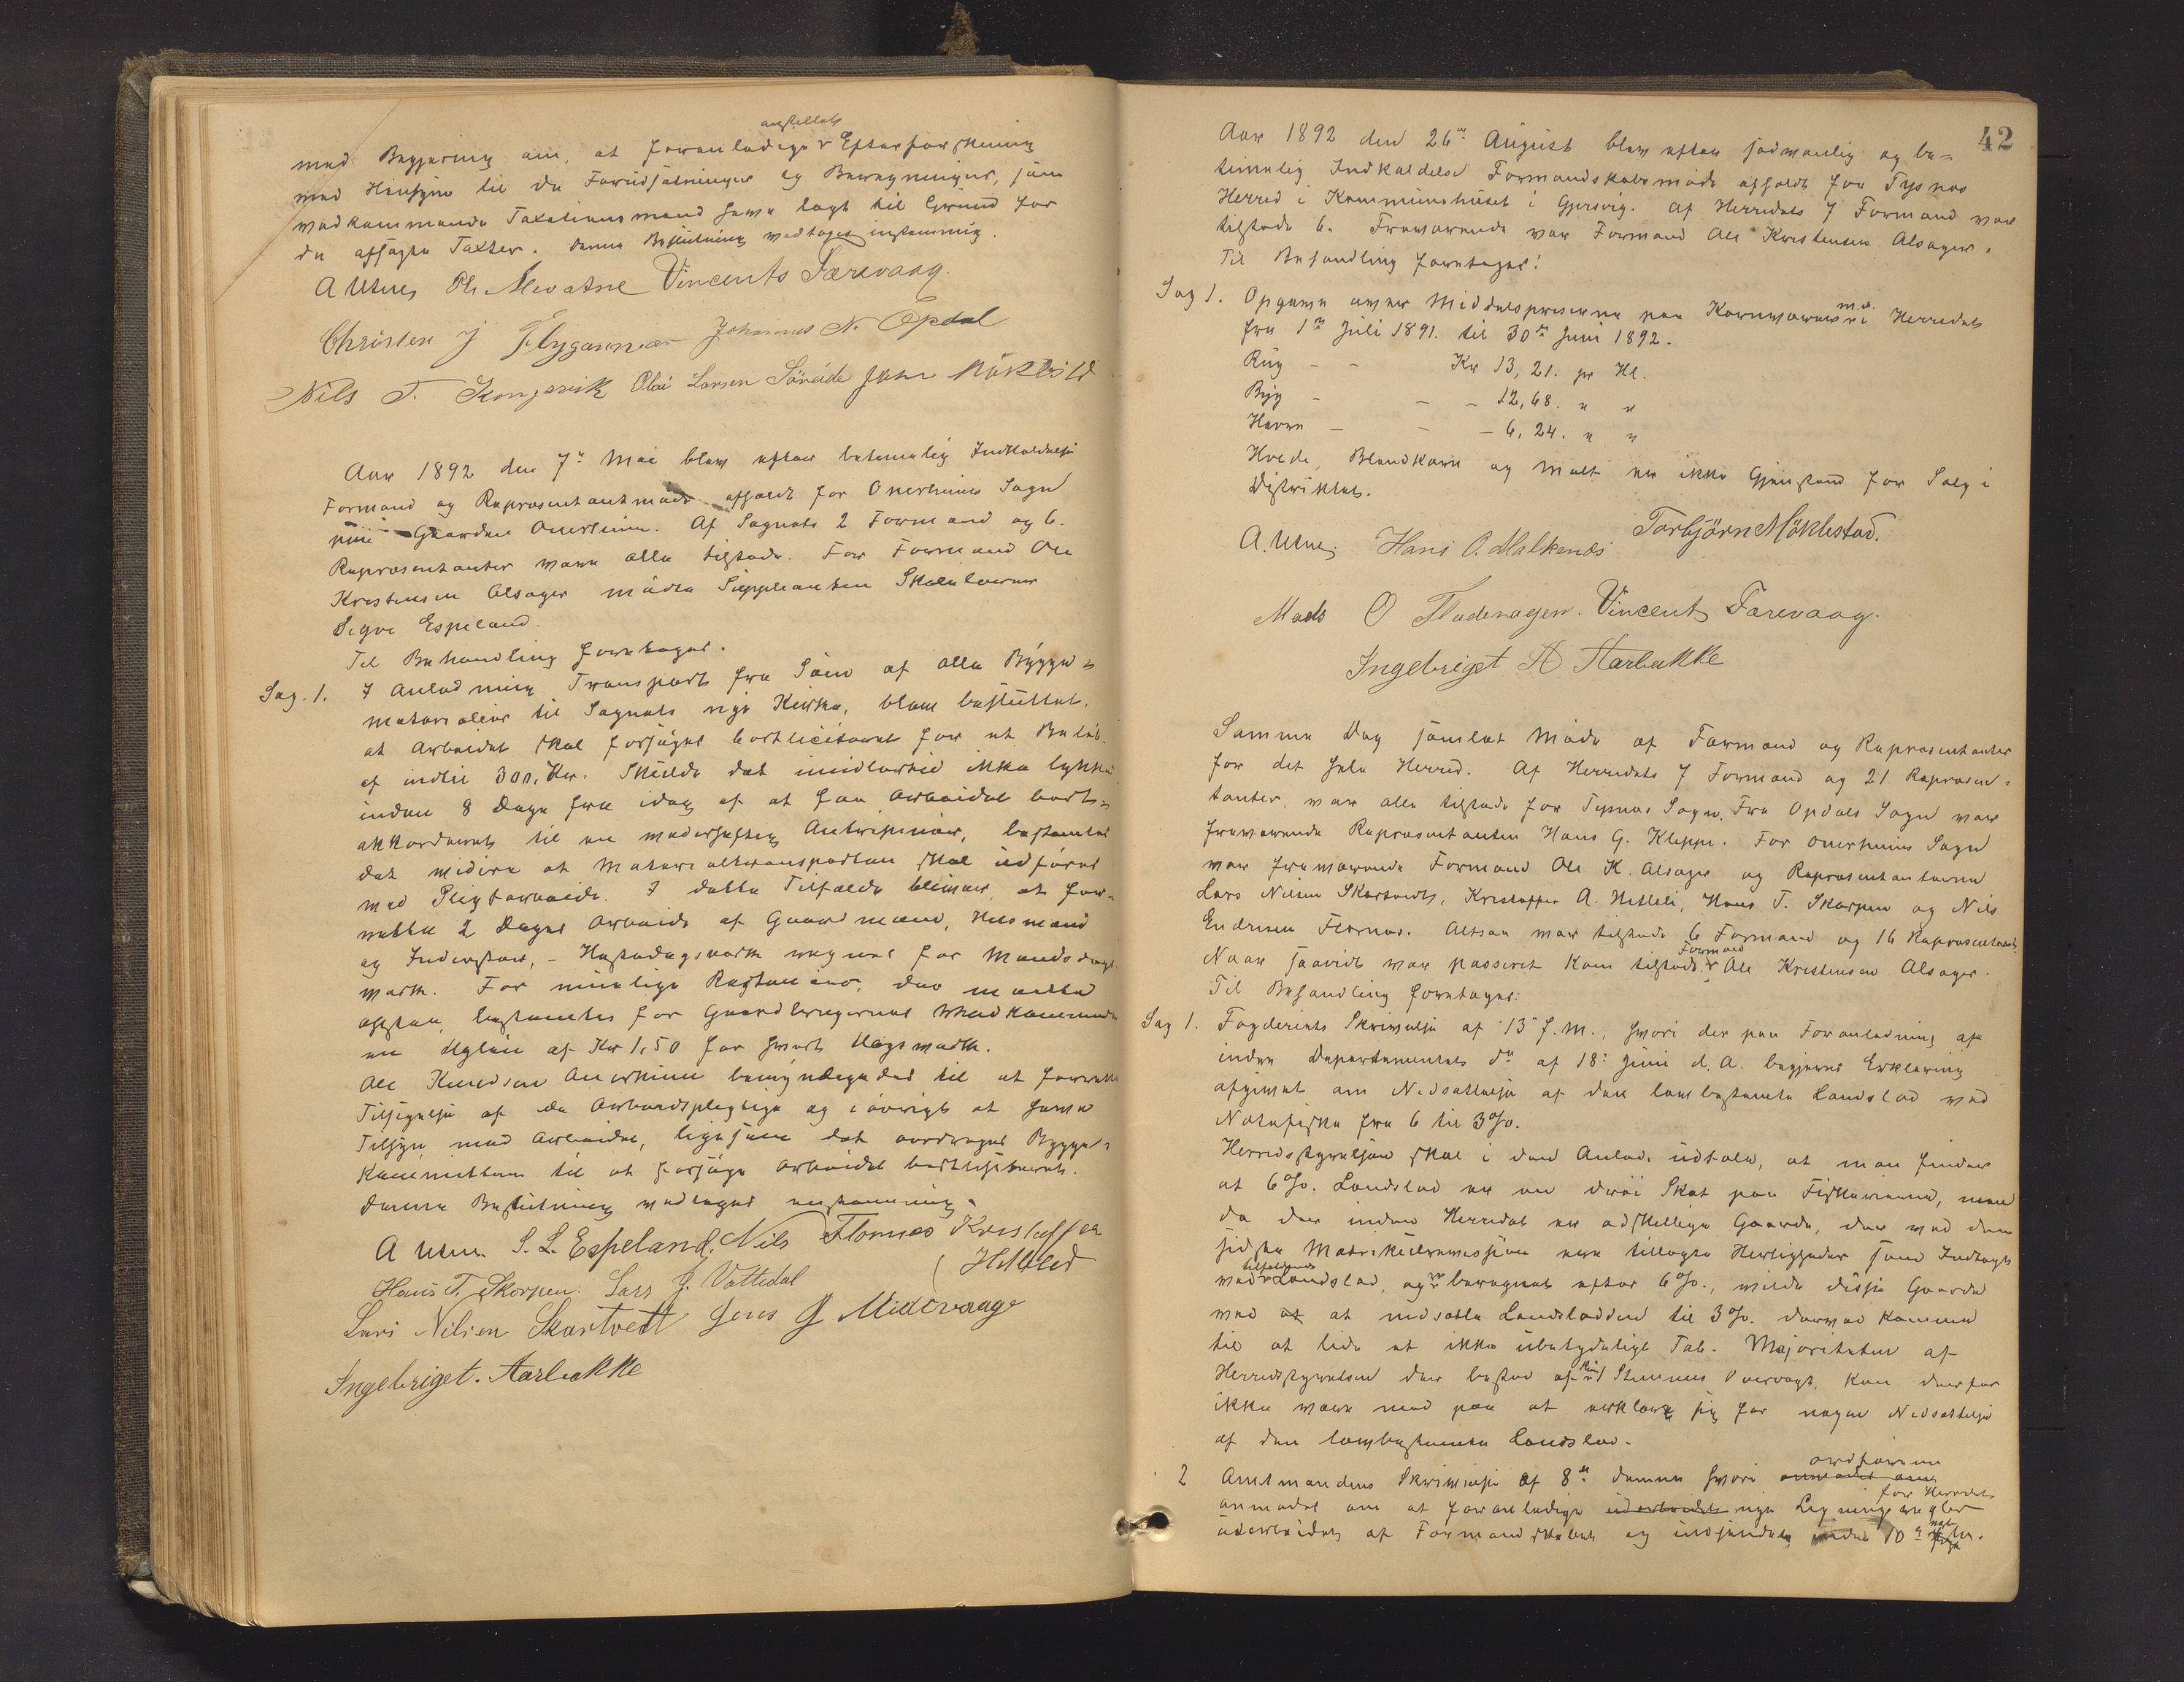 anstillet
med Begjæring om, at foranledige Efterforskning
med Hensyn til de Forudsætninger og Beregninger, som
vedkommende Taxationsmænd have lagt til Grund for
de afsagte Taxter. Denne Beslutning vedtoges enstemmig.
A Utne, Ole Mevatne Vincents Færevaag.
Christen J Flygansvær Johannes N. Opdal
Nils T. Kongsvik Olai Larsen Söreide John Nökkild
Aar 1892 den 7de Mai blev efter betimelig Indkaldelse
Formand og Repræsentantmöde afholdt for Onerheims Sogn
paa Gaarden Onerheim. Af Sognets 2 Formænd og 6.
Repræsentanter vare alle tilstede. For Formand Ole
Kristensen Alsager mödte Suppleanten Skolelærer
Sigve Espeland.
Til Behandling foretoges.
Sag. 1. I Anledning Transport fra Söen af alle Bygge=
materialier til Sognets nye Kirke, blev besluttet,
at Arbeidet skal forsöges bortliciteret for et Belöb
af indtil 300. Kr. Skulde det imidlertid ikke lykkes
inden 8 Dage fra idag af at faa Arbeidet bort=
akkorderet til en vederheftig Antreprenör, bestemtes
det videre at Materialtransporten skal udföres
med Pligtarbeide. I dette Tilfælde bliver at for=
rette 2 Dages Arbeide af Gaardmænd, Husmænd
og Inderster, - Hestedagsverk regnes for Mandsdags
værk. For mulige Restancer, der maatte
opstaa, bestemtes for Gaardbrugernes Vedkommende
en Udgift af Kr 1,50 for hvert Dagsværk.
Ole Knudsen Onerheim bemyndigedes til at forrette
Tilsigelse af de Arbeidspligtige og iövrigt at have
Tilsyn med Arbeidet, ligesom det overdroges Bygge=
Kommitteen til at forsöge Arbeidet bortliciteret.
Denne Beslutning vedtoges enstemmig.
A Utne. S. L. Espeland. Nils Flornes Kristoffer
Hetleli
Hans T. Skorpen. Lars J. Vattedal
Lars Nilsen Skartvedt Jens J Midtvaage
Ingebrigt. Aarbakke
42
Aar 1892 den 26de August blev efter sedvanlig og be=
timelig Indkaldelse Formandskabsmöde afholdt for Tysnes
Herred i Kommunehuset i Gjersvig. Af Herredets 7 Formænd var
tilstede 6. Fraværende var Formand Ole Kristensen Alsager.
Til Behandling foretoges:
Sag 1. Opgave over Middelspriserne paa Kornvarer m.v. i Herredet
fra 1ste Juli 1891. til 30te Juni 1892.
Rug - - Kr 13,21. pr Hl.
Byg - - - 12,68. " "
Havre - - - 6,24. " "
Hvede, Blandkorn og Malt er ikke Gjenstand for Salg i
Distriktet.
A. Utne, Hans O. Malkenæs Torbjörn Möklestad.
Mads O Fladeragen. Vincents Færevaag.
Ingebrigt A Aarbakke
Samme Dag samlet Möde af Formænd og Repræsentanter
for det hele Herred. Af Herredets 7 Formænd og 21 Repræsen=
tanter, var alle tilstede for Tysnes Sogn. Fra Opdals Sogn var
fraværende Repræsentanten Hans G. Kleppe. For Onerheims Sogn
var fraværende Formand Ole K. Alsager og Repræsentanterne
Lars Nilsen Skartvedt, Kristoffer A. Hetleli, Hans T. Skorpen og Nils
Endresen Flornes. Altsaa var tilstede 6 Formænd og 16 Repræsentanter.
Naar saavidt var passeret kom tilstede Formand Ole Kristensen Alsager.
Til Behandling foretoges:
Sag 1. Fogderiets Skrivelse af 13de f. M., hvori der paa Foranledning af
indre Departementets do af 18de Juni d. A. begjæres Erklæring
afgivet om Nedsættelse af den lovbestemte Landslod ved
Notefiske fra 6 til 3%.
Herredsstyrelsen skal i den Anledn. udtale, at man finder
at 6%. Landslod er en dröi Skat paa Fiskerierne, men
da der inden Herredet er adskillige Gaarde, der ved den
sidste Matrikulrevision ere tillagte Herligheder som Indtægt
ved tilfaldende Landslod, og er beregnet efter 6%., vilde disse Gaarde
ved at nedsætte Landslodden til 3%. derved komme
til at lide et ikke ubetydeligt Tab. Majoriteten af
Herredsstyrelsen der bestod af kun 1 Stemmes Overvægt, kan derfor
ikke være med paa at erklære sig for nogen Nedsættelse
af den lovbestemte Landslod.
2 Amtmandens Skrivelse af 8de dennes hvori ordföreren
anmodet om at foranledige nye Ligningsregler for Herredet
udarbeidet af Formandskabet og indsendte inden 10de